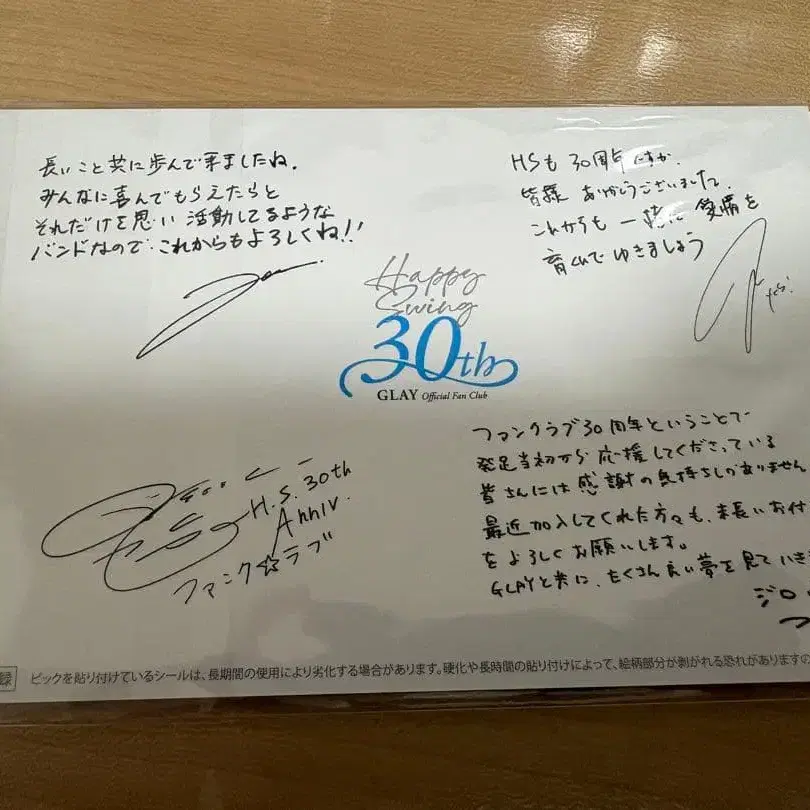 長いこと共に歩んで来ましたね。
みんなに喜んでもらえたらと
それだけを思い活動してるような
バンドなので、これからもよろしくね!!
HSも30周年ですか、
皆様 ありがとうございました。
これからも 一緒に 愛情を
育んで ゆきましょう
Happy
Swing
30th
GLAY Official Fan Club
H.S. 30th
Anniv.
ファンク☆ラブ
ファンクラブ30周年ということで
発足当初から応援してくださっている
皆さんには感謝の気持ちしかありません
最近加入してくれた方々も、末長いお付
をよろしくお願いします。
GLAYと共に、たくさん良い夢を見ていき
ジロ
録 ピックを貼り付けているシールは、長期間の使用により劣化する場合があります。硬化や長時間の貼り付けによって、絵柄部分が剥がれる恐れがありますの